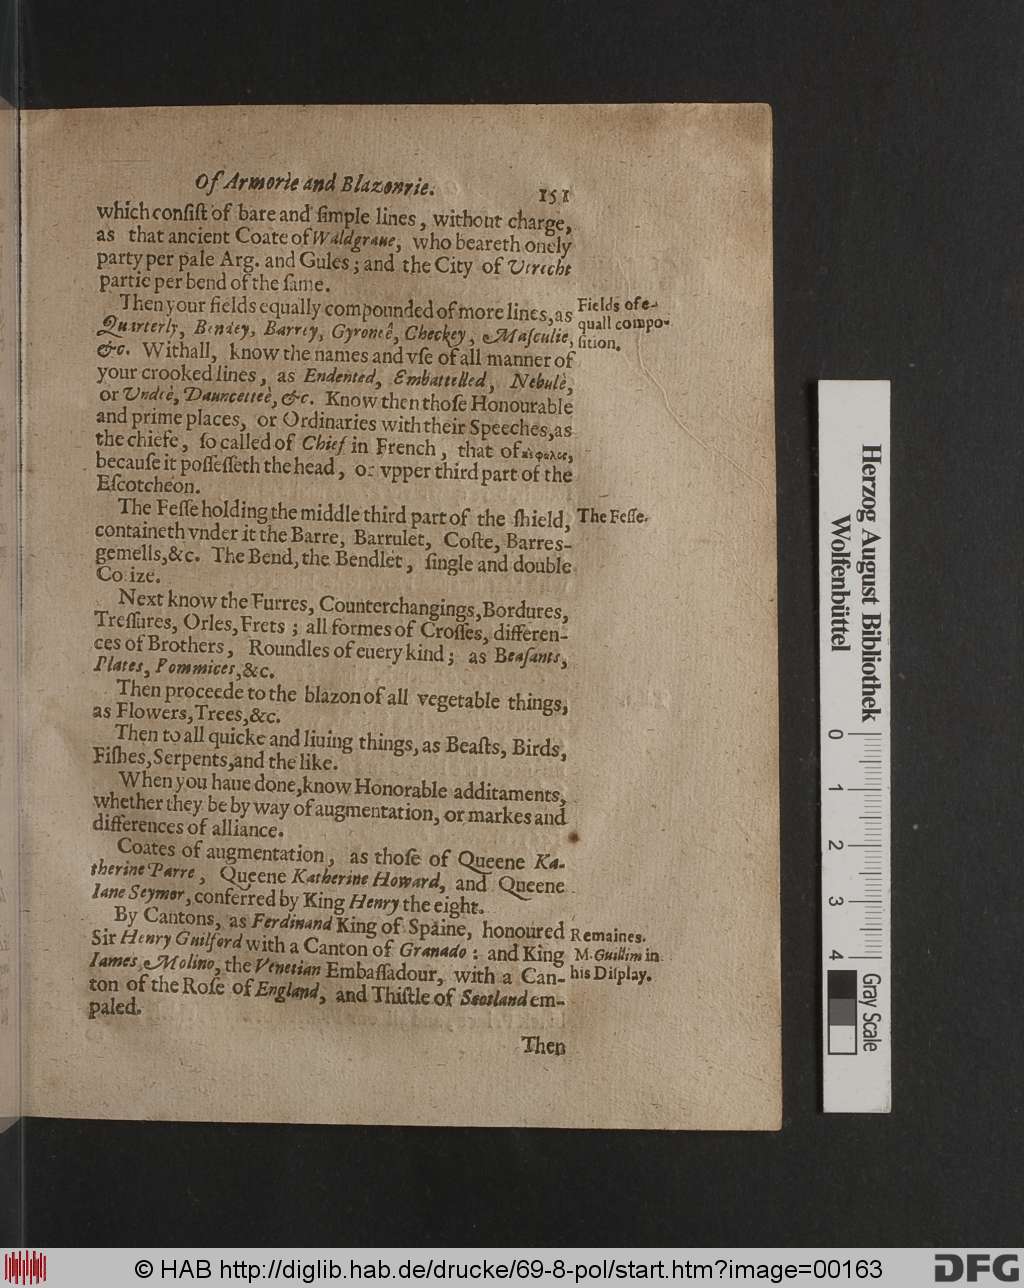 Of Armorie and Blazonrie.
151
which conſiſt of bare and ſimple lines, without charge,
as that ancient Coate of Waldgraue, who beareth onely
party per pale Arg. and Gules; and the City of Vtrecht
partie per bend of the ſame.
Then your fields equally compounded of more lines, as
Quarterly, Bendey, Barrey, Gyroneê, Checkey, Maſculie,
&c. Withall, know the names and vſe of all manner of
your crooked lines, as Endented, Embattelled, Nebulè,
or Vndeè, Dauncetteè, &c. Know then thoſe Honourable
and prime places, or Ordinaries with their Speeches, as
the chiefe, ſo called of Chief in French, that of
becauſe it poſſeſſeth the head, or vpper third part of the
Eſcotcheon.
The Feſſe holding the middle third part of the ſhield,
containeth vnder it the Barre, Barrulet, Coſte, Barres-
gemells, &c. The Bend, the Bendlet, ſingle and double
Co ize.
Next know the Furres, Counterchangings, Bordures,
Treſſures, Orles, Frets; all formes of Croſſes, differen-
ces of Brothers, Roundles of euery kind; as Beaſants,
Plates, Pommices, &c.
Then proceede to the blazon of all vegetable things,
as Flowers, Trees, &c.
Then to all quicke and liuing things, as Beaſts, Birds,
Fiſhes, Serpents, and the like.
When you haue done, know Honorable additaments,
whether they be by way of augmentation, or markes and
differences of alliance.
Coates of augmentation, as thoſe of Queene Ka-
therine Parre, Queene Katherine Howard, and Queene
Iane Seymor, conferred by King Henry the eight.
By Cantons, as Ferdinand King of Spaine, honoured
Sir Henry Guilford with a Canton of Granado: and King
Iames, Molino, the Venetian Embaſſadour, with a Can-
ton of the Roſe of England, and Thiſtle of Scotland em-
paled.
Then
Fields of e-
quall compo-
ſition.
The Feſſe.
Remaines.
M. Guillim in
his Diſplay.
Herzog August Bibliothek
Wolfenbüttel
0
1
2
3
4
Gray Scale
© HAB http://diglib.hab.de/drucke/69-8-pol/start.htm?image=00163
DFG